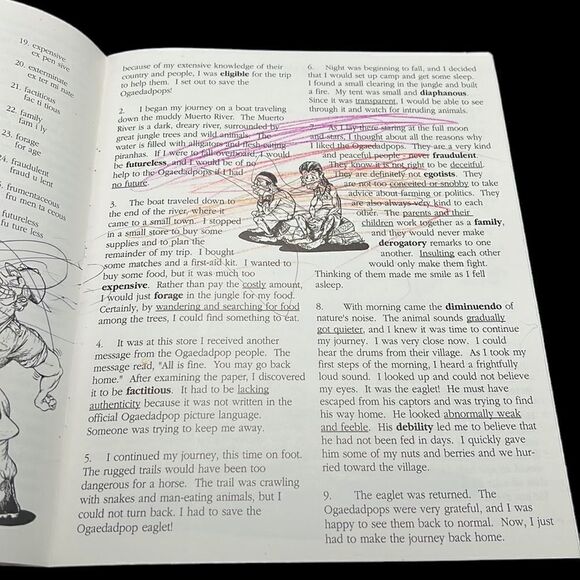 19. expensive
ex pen sive
20. exterminate
ex ter mi nate
21. factitious
fac ti tious
22. family
fam i ly
23. forage
for age
24. fraudulent
fraud u lent
frumentaceous
fru men ta ceous
futureless
fu ture less
because of my extensive knowledge of their
country and people, I was eligible for the trip
to help them. I set out to save the
Ogaedadpops!
2. I began my journey on a boat traveling
down the muddy Muerto River. The Muerto
River is a dark, dreary river, surrounded by
great jungle trees and wild animals. The
water is filled with alligators and flesh-eating
piranhas. If I were to fall overboard, I would
be futureless, and I would be of no
help to the Ogaedadpops if I had
no future.
3. The boat traveled down to
the end of the river, where it
came to a small town. I stopped
in a small store to buy some
supplies and to plan the
remainder of my trip. I bought
some matches and a first-aid kit. I wanted to
buy some food, but it was much too
expensive. Rather than pay the costly amount,
I would just forage in the jungle for my food.
Certainly, by wandering and searching for food
among the trees, I could find something to eat.
4. It was at this store I received another
message from the Ogaedadpop people. The
message read, "All is fine. You may go back
home." After examining the paper, I discovered
it to be factitious. It had to be lacking
authenticity because it was not written in the
official Ogaedadpop picture language.
Someone was trying to keep me away.
5. I continued my journey, this time on foot.
The rugged trails would have been too
dangerous for a horse. The trail was crawling
with snakes and man-eating animals, but I
could not turn back. I had to save the
Ogaedadpop eaglet!
6. Night was beginning to fall, and I decided
that I would set up camp and get some sleep.
I found a small clearing in the jungle and built
a fire. My tent was small and diaphanous.
Since it was transparent, I would be able to see
through it and watch for intruding animals.
7. As I lay there staring at the full moon
and stars, I thought about all the reasons why
I liked the Ogaedadpops. They are a very kind
and peaceful people - never fraudulent.
They know it is not right to be deceitful.
They are definitely not egotists. They
are not too conceited or snobby to take
advice about farming or politics. They
are also always very kind to each
other. The parents and their
children work together as a family,
and they would never make
derogatory remarks to one
another. Insulting each other
would only make them fight.
Thinking of them made me smile as I fell
asleep.
8. With morning came the diminuendo of
nature's noise. The animal sounds gradually
got quieter, and I knew it was time to continue
my journey. I was very close now. I could
hear the drums from their village. As I took my
first steps of the morning, I heard a frightfully
loud sound. I looked up and could not believe
my eyes. It was the eaglet! He must have
escaped from his captors and was trying to find
his way home. He looked abnormally weak
and feeble. His debility led me to believe that
he had not been fed in days. I quickly gave
him some of my nuts and berries and we hur-
ried toward the village.
9. The eaglet was returned. The
Ogaedadpops were very grateful, and I was
happy to see them back to normal. Now, I just
had to make the journey back home.